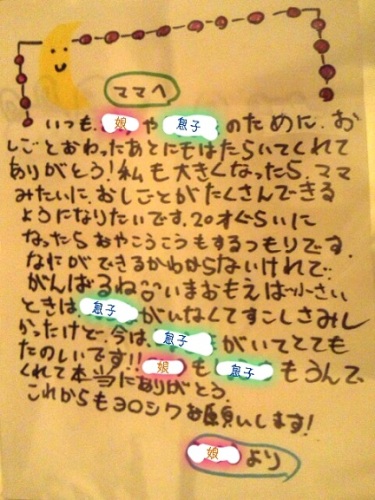 ママへ
いつも、娘や息子のために、お
しごとおわったあとにもはたらいてくれて
ありがとう!私も大きくなったら、ママ
みたいに、おしごとがたくさんできる
ようになりたいです。20才ぐらいに
なったらおやこうこうもするつもりです。
なにができるかわからないけれど、
がんばるね いまおもえば小さい
ときは息子がいなくてすこしさみし
かったけど、今は、息子がいてとても
たのしいです!!娘も息子もうんで
くれて本当にありがとう。
これからもヨロシクお願いします!
娘より